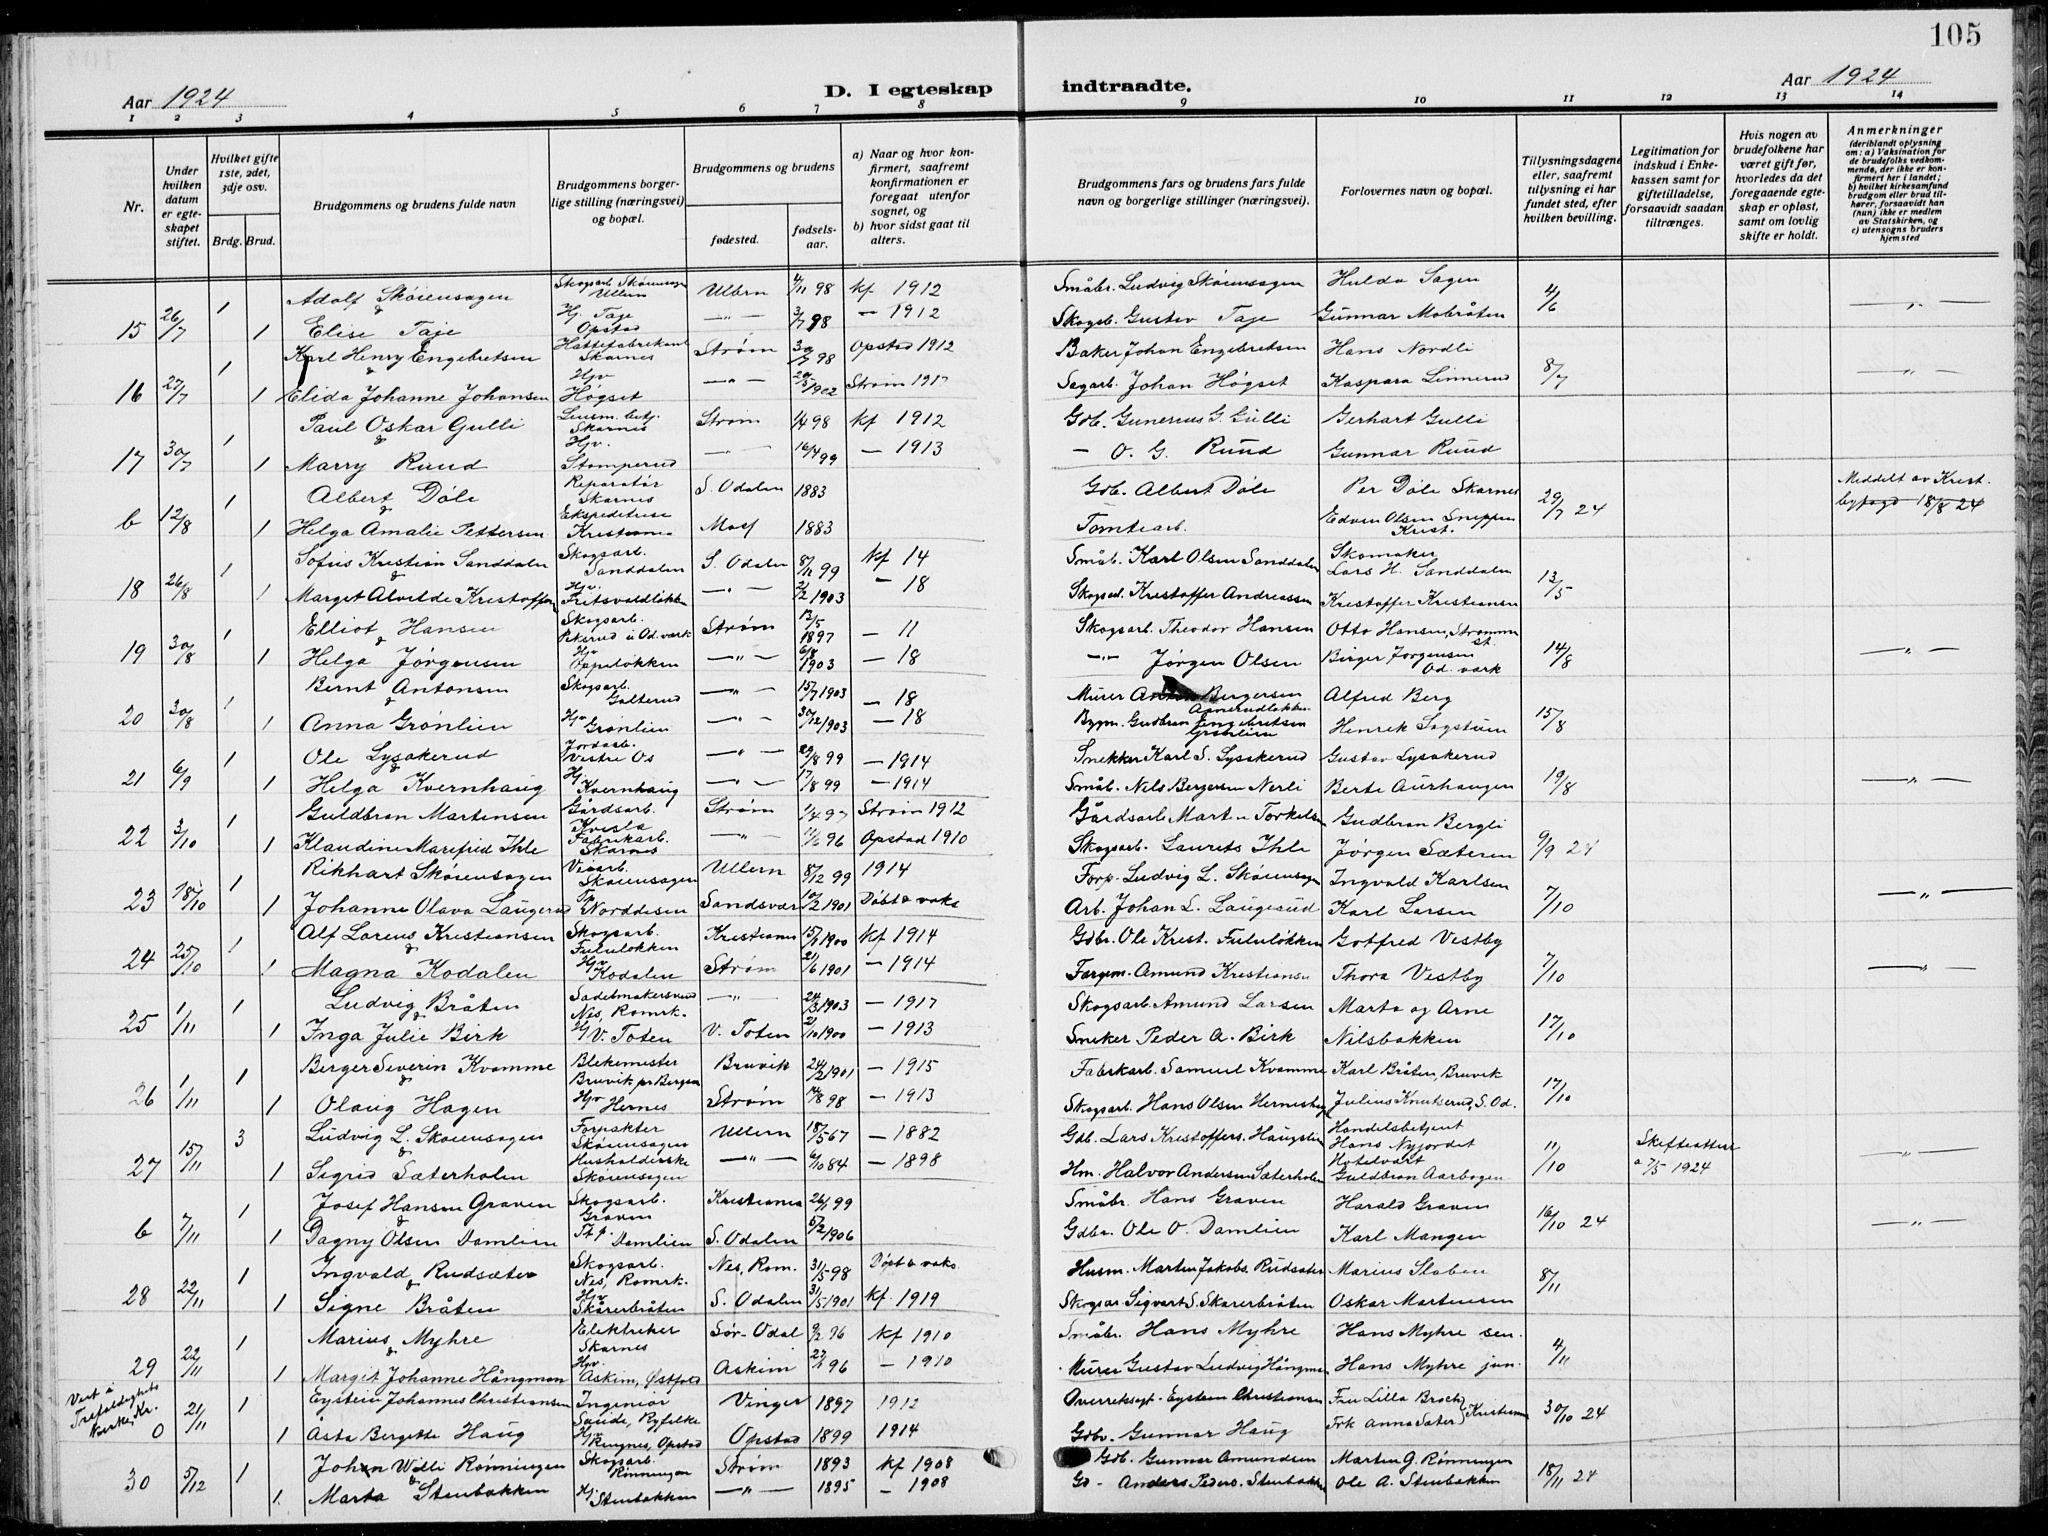 105
Aar 1924
D. I egteskap indtraadte.
Aar 1924
1 2 3 4 5 6 7 8 9 10 11 12 13 14
Nr.
Under hvilken datum er egteskapet stiftet.
Hvilket gifte 1ste, 2det, 3dje osv.
Brdg. Brud.
Brudgommens og brudens fulde navn
Brudgommens borgerlige stilling (næringsvei) og bopæl.
Brudgommens og brudens
fødested. fødselsaar.
a) Naar og hvor konfirmert, saafremt konfirmationen er foregaat utenfor sognet, og
b) hvor sidst gaat til alters.
Brudgommens fars og brudens fars fulde navn og borgerlige stillinger (næringsvei).
Forlovernes navn og bopæl.
Tillysningsdagene eller, saafremt tillysning ei har fundet sted, efter hvilken bevilling.
Legitimation for indskud i Enkekassen samt for giftetilladelse, forsaavidt saadan tiltrænges.
Hvis nogen av brudefolkene har været gift før, hvorledes da det foregaaende egteskap er opløst, samt om lovlig skifte er holdt.
Anmerkninger (deriblandt oplysning om: a) Vaksination for de brudefolks vedkommende, der ikke er konfirmert her i landet; b) hvilket kirkesamfund brudgom eller brud tilhører, forsaavidt han (hun) ikke er medlem av Statskirken, og c) utensogns bruders hjemsted
1 Adolf Skøiensagen Skogsarb. Skøiensagen Ullern Ullern 4/11 98 kf 1912 Småbr. Ludvig Skøiensagen Hulda Sagen 4/6
15 26/7 1 Elise Taje Hj. Taje Opstad —"— 3/7 98 — 1912 Skogsb. Gustav Taje Gunnar Mobråten
1 Karl Henry Engebretsen Hattefabrikant Skarnes Strøm 30/7 98 Opstad 1912 Baker Johan Engebretsen Hans Nordli 8/7
16 27/7 1 Elida Johanne Johansen Hjv Høgset —"— 29/5 1902 Strøm 1917 Sagarb. Johan Høgset Kaspara Linnerud
1 Paul Oskar Gulli Lensm. betj. Skarnes Strøm 14 98 kf 1912 Gdb. Gunerius G. Gulli Gerhart Gulli
17 30/7 1 Marry Ruud Hjv. Stomperud —"— 16/4 99 — 1913 — O. G. Ruud Gunnar Ruud
1 Albert Døle Reparatør Skarnes S. Odalen 1883 Gdb. Albert Døle Per Døle Skarnes 29/7 24 Meddelt av Krest. byfogd 18/8 24
b 12/8 1 Helga Amalie Pettersen Ekspeditrise Kristiania Moss 1883 Tomtearb. Edvin Olsen Sneppen Krist.
1 Sofus Kristian Sanddalen Skogsarb. Sanddalen S. Odalen 8/12 99 kf 14 Småb. Karl Olsen Sanddalen Skomaker Lars H. Sanddalen 13/5
18 26/8 1 Marget Alvilde Kristoffersen Hjv. Fritsvoldløkken —"— 2/2 1903 — 18 Skogsa. Kristoffer Andreassen Kristoffer Kristiansen
1 Elliot Hansen Skogsarb. Pekerud i Od. værk Strøm 12/5 1897 — 11 Skogsarb. Theodor Hansen Otto Hansen, Strømmen st. 14/8
19 30/8 1 Helga Jørgensen Hjv Oppeløkken —"— 6/8 1903 — 18 —"— Jørgen Olsen Birger Jørgensen Od. værk
1 Bernt Antonsen Skogsarb. Galterud —"— 15/7 1903 — 18 Murer Anton Bergersen Aamerudløkken Alfred Berg 15/8
20 30/8 1 Anna Grønlien Hjv Grønlien —"— 30/12 1903 — 18 Bygm. Gudbran Engebretsen Grønlien Henrik Sagstuen
1 Ole Lysakerud Jordarb. Vestre Os —"— 29/8 99 — 1914 Snekker Karl S. Lysakerud Gustav Lysakerud 19/8
21 6/9 1 Helga Kvernhaug Hj. Kvernhaug —"— 17/8 99 — 1914 Småb. Nils Bergersen Nerli Berte Aurhaugen
1 Guldbran Martensen Gårdsarb. Kvisla Strøm 1/4 97 Strøm 1912 Gårdsarb. Martin Torkelsen Gudbran Bergli 9/9 24
22 3/10 1 Klaudine Marefred Ihle Fabrikarb. Skarnes —"— 11/6 96 Opstad 1910 Skogsarb. Laurits Ihle Jørgen Sæteren
1 Rikhart Skøiensagen Veiarb. Skøiensagen Ullern 8/12 99 1914 Forp. Ludvig L. Skøiensagen Ingvald Karlsen 7/10
23 18/10 1 Johanne Olava Laugerud Tp. Norddesen Sandsvær 10/2 1901 Døbt o vaks Arb. Johan L. Laugerud Karl Larsen
1 Alf Lorens Kristiansen Skogsarb. Fululøkken Kristiania 15/1 1900 kf 1914 Gdbr. Ole Krist. Fululøkken Gotfred Vestby 7/10
24 25/10 1 Magna Kodalen Hjv Kodalen Strøm 21/6 1901 — 1914 Fargem. Amund Kristiansen Thora Vestby
1 Ludvig Bråten Sadelmakersvend Nes, Romrk. —"— 24/3 1903 — 1917 Skogsarb. Amund Larsen Marta og Arne 17/10
25 1/11 1 Inga Julie Birk Hj V. Toten V. Toten 2/10 1900 — 1913 Sneker Peder A. Birk Nilsbakken
1 Berger Severin Kvamme Blekemester Bruvik pr Bergen Bruvik 24/2 1901 — 1915 Fabrikarb. Samuel Kvamme Karl Bråten, Bruvik 17/10
26 1/11 1 Olaug Hagen Hjv Hernes Strøm 7/8 98 — 1913 Skogsarb. Hans Olsen Herneshag Julius Knutserud, S. Od.
3 Ludvig L. Skøiensagen Forpakter Skøiensagen Ullern 18/5 67 — 1882 Gdb. Lars Kristoffers. Haugslien Handelsbetjent Hans Nyjordet 11/10 Skifteattest a 7/5 1924
27 15/11 1 Sigrid Sæterholen Husholderske Skøiensagen —"— 6/10 84 — 1898 Hm. Halvor Andersen Sæterholen Hotelvært Guldbran Aarbogen
1 Josef Hansen Graven Skogsarb. Graven Kristiania 26/1 99 Småbr. Hans Graven Harald Graven 16/10 24
b 7/11 1 Dagny Olsen Damlien Tp. Damlien S. Odalen 5/2 1906 Gdbr. Ole O. Damlien Karl Mangen
1 Ingvald Rudsæter Skogsarb. Nes, Romrk. Nes, Rom. 31/5 98 Døpt o vaks. Husm. Martin Jakobs. Rudsæter Marius Staben 8/11
28 22/11 1 Signe Bråten Hjv Skårerbråten S. Odalen 31/5 1901 kf. 1919 Skogsar. Sigvart S. Skarerbråten Oskar Martensen
1 Marius Myhre Elektriker Skarnes Sør-Odal 9/2 96 kf 1910 Småbr. Hans Myhre Hans Myhre sen. 4/11
29 22/11 1 Margit Johanne Hångman Hjv. Askim, Østfold Askim 27/1 96 — 1910 Murer Gustav Ludvig Hångman Hans Myhre jun.
Viet i Trefoldighets kirke, Kr.
1 Eystein Johannes Christiansen Ingeniør Saude, Ryfylke Vinger 1897 1912 Overretssagf. Eystein Christiansen Fru Lilla Broch 30/10 24
0 21/11 1 Åsta Bergette Haug Hjv Ringnes, Opstad Opstad 1899 1914 Gdbr. Gunnar Haug Frk Anna Sæter Kristiania
1 Johan Willi Rønningen Skogsarb. Rønningen Strøm 1893 kf 1908 Gdb. Gunnar Amundsen Martin G. Rønningen 18/11 24
30 5/12 1 Marta Stenbakken Hj. Stenbakken —"— 1895 — 1908 Gd- Anders Peders. Stenbakken Ole A. Stenbakken